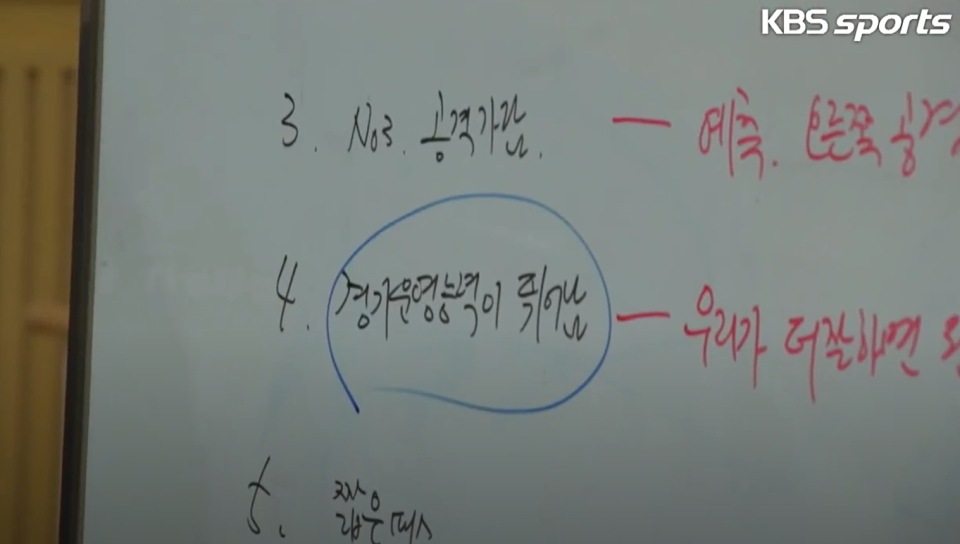 KBS sports
3. No3. 공격가담. — 예측. 한쪽 공격
4. 경기운영능력이 뛰어남 — 우리가 더잘하면
5. 짧은패스